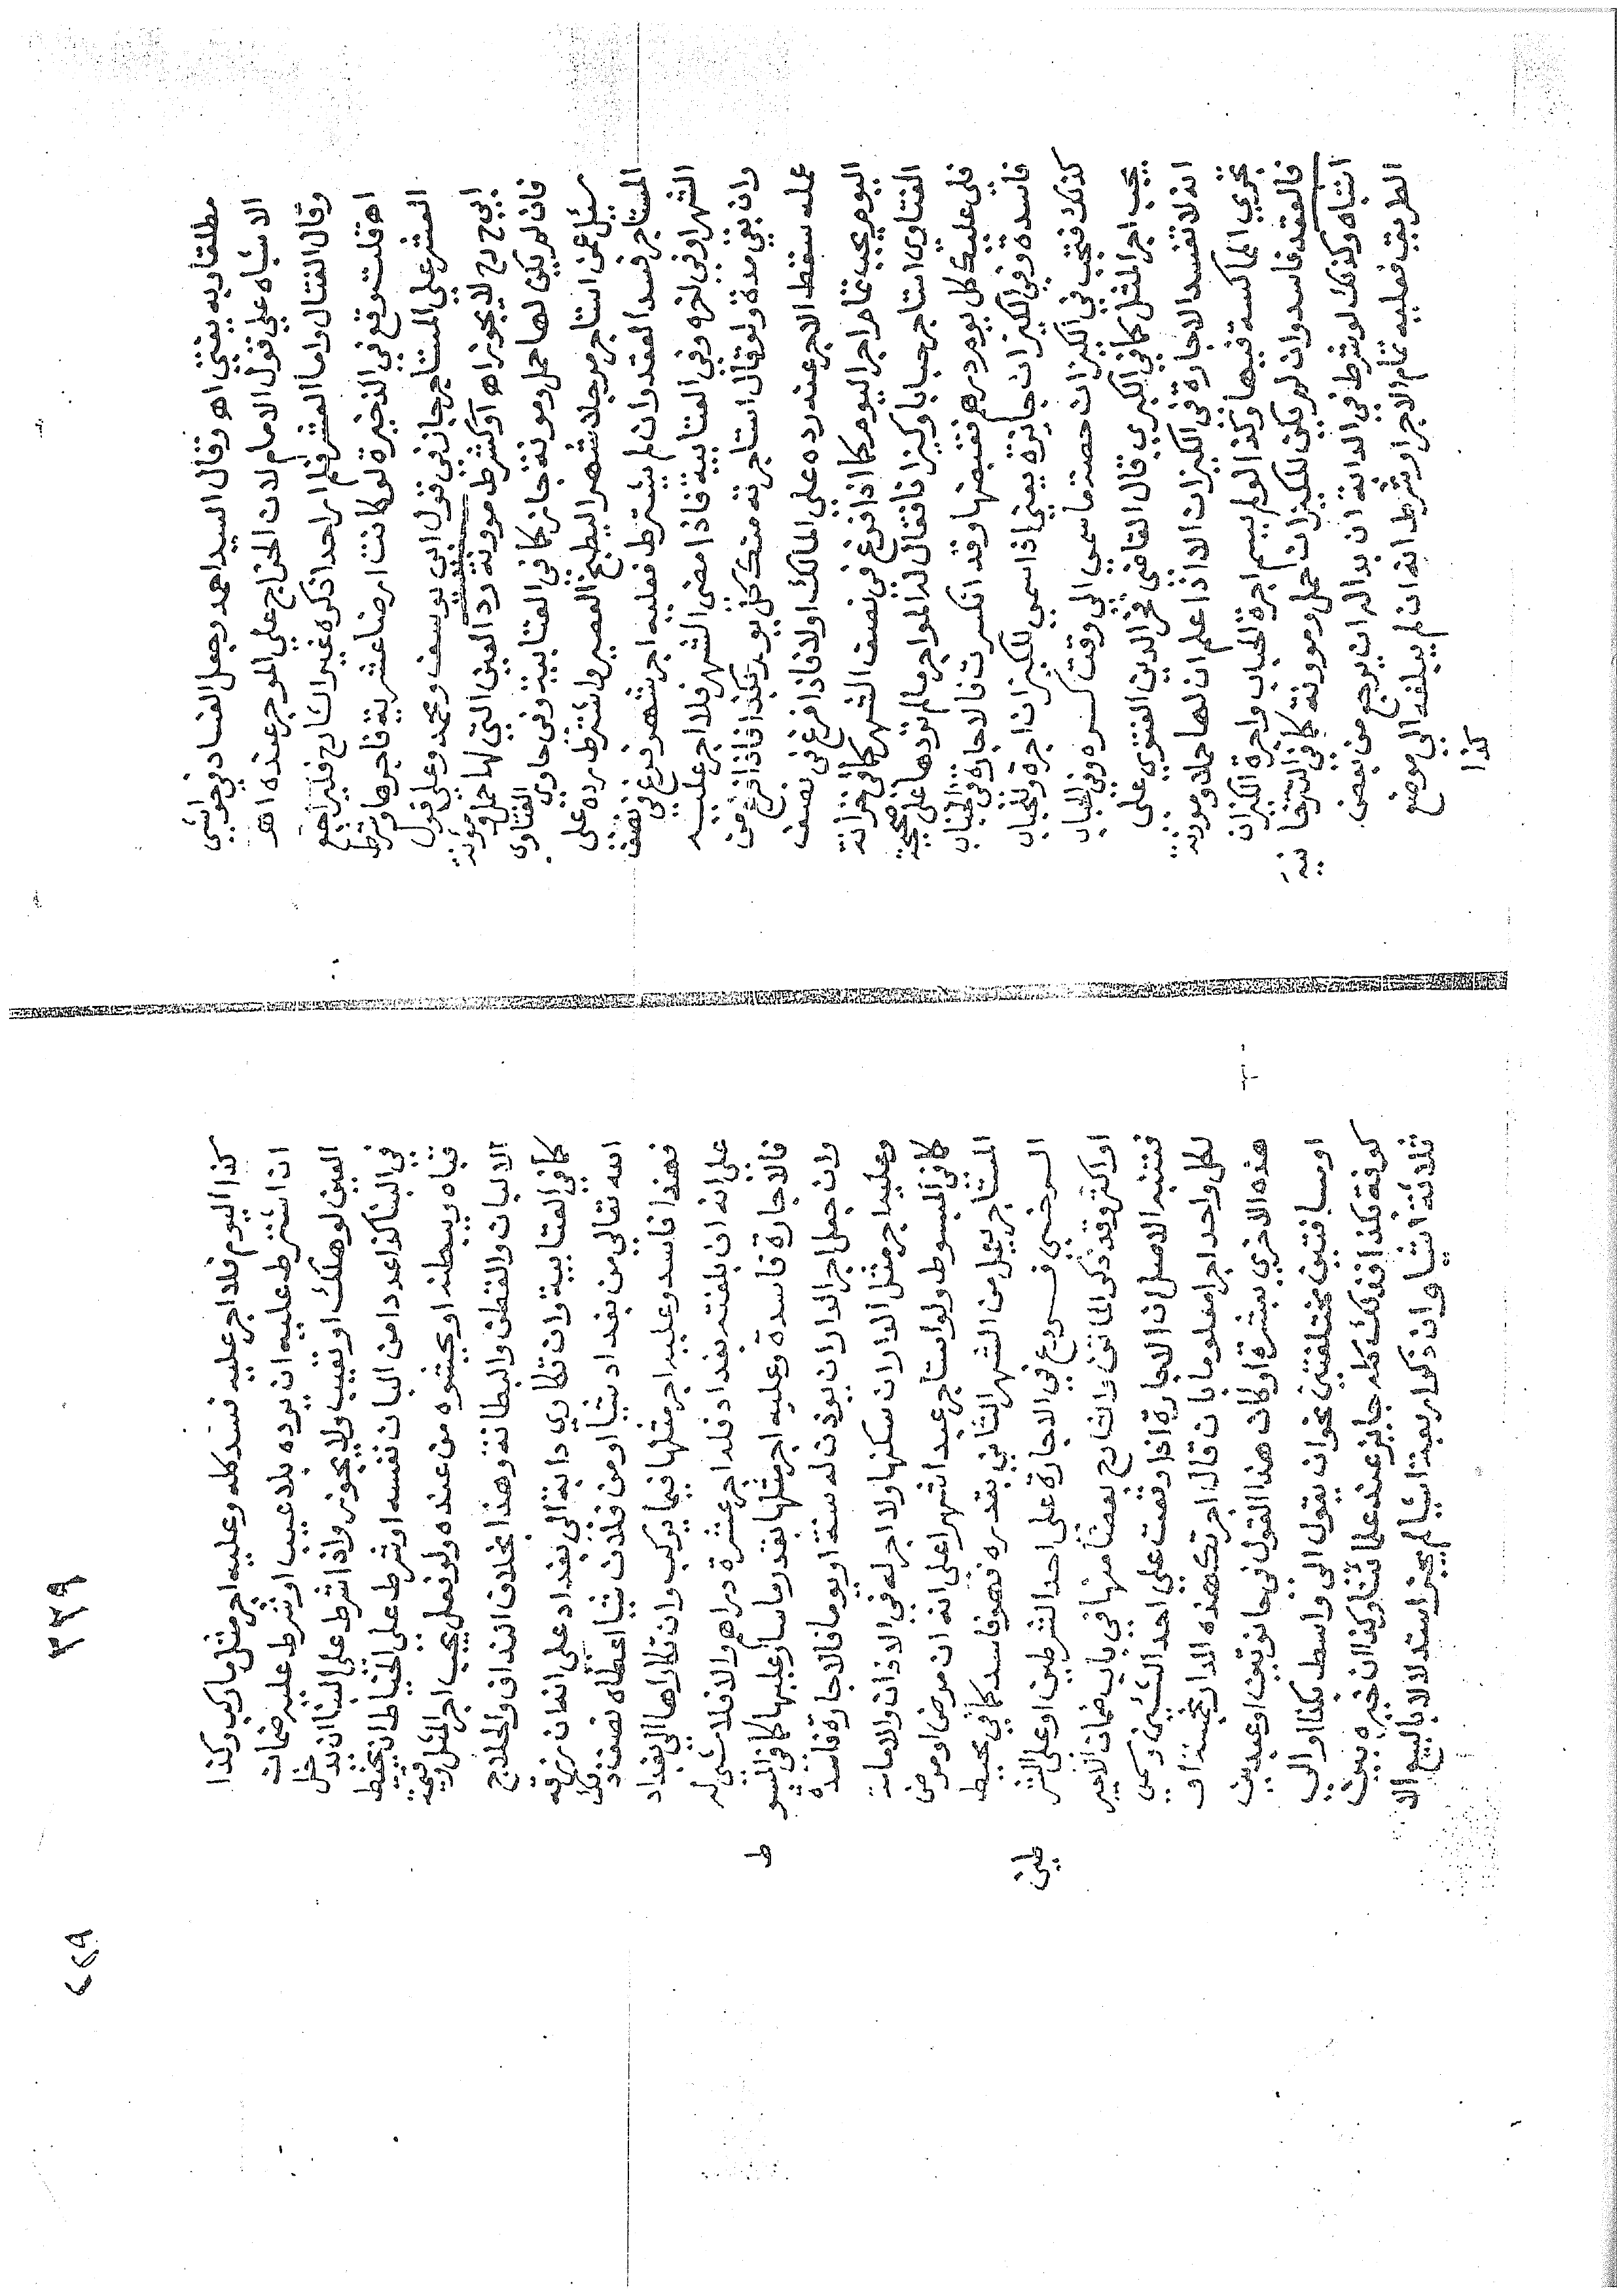 مطلقا وبه يفتي اهـ وقال السيد احمد وجعل الفساد في حواشي
الاشباه علي قول الامام لان الخراج علي الموجر عنده اهـ
وقال القتال واما العشر فلم ار احدا ذكره غير الشارح فليراجع
اهـ قلت وقع في الذخيرة لو كانت ارضا عشرية فاجرها وشرط
العشر علي المستاجر جاز في قول ابي يوسف ومحمد وعلي قول
ابي ح رح لا يجوز اهـ اكشرط موونة رد العين التي لها حمل وموونة
فان لم يكن لها حمل وموونة جاز كما في العتابية وفي حاوي الفتاوي
سئل عمن استاجر مرجلا شهرا ليطبخ العصير واشترط رده علي
المستاجر فسد العقد وان لم يشترط فعليه اجر شهر فرغ في نصف
الشهر او في اخره وفي العتابية فاذا مضي الشهر فلا اجر عليه
وان بقي مدة ولو قال استاجرته منك كل يوم بكذا فاذا فرغ من
عمله سقط الاجر عنه رده علي المالك اولا فاذا فرغ في نصف
اليوم يجب تمام اجر اليوم كما اذا فرغ في نصف الشهر كما في خزانة
الفتاوي استاجر حبابا وكيزانا فقال له المواجر ما لم تردها علي صحيحة
فلي عليك كل يوم درهم فقبضها وقد انكسرت فالاجارة في الحباب
فاسدة وفي الكيزان جايزة يعني اذا سمي للكيزان اجرة وللحباب
كذلك فتجب في الكيزان حصة ما سمي الي وقت كسره وفي الحباب
يجب اجر المثل كما في الكبري قال القاضي فخر الدين الفتوي علي
انه لا تفسد الاجارة في الكيزان الا اذا علم ان لها حملا وموونة
تجري المماكسة فيها وكذا لو لم يسم اجرة الحباب واجرة الكيزان
فالعقد فاسد وان لم يكن للكيزان حمل وموونة كما في التترخانية
اشباه وكذلك لو شرط في الدابة ان بدا له ان يرجع من بعض
الطريق فعليه تمام الاجر او شرط انه ان لم يبلغه الي موضع
كذا
٣٣٩
٤٤٩
كذا اليوم فلا اجر عليه فسد كله وعليه اجر مثل ما ركب وكذا
ان اشترط عليه ان يرده بلا عيب او شرط عليه ضمان
العين لو هلك او تعيب ولا يجوز واذا شرط علي البنا ان يدخل
في البنا كذا عددا من اللبان نفسه او شرط علي الخياط ان يخيط
قباه ويبطنه او يحشوه من عنده ولو فعل يجب اجر المثل وقيمة
الالبان والقطن والبطانة وهذا بخلاف النداف والحلاج
كما في العتابية وان تكاري دابة الي بغداد علي انها ان رزقه
الله تعالي من بغداد شيا او من فلان شيا اعطاه نصف ذلك
فهذا فاسد وعليه اجر مثلها فيما يركب وان تكاراها الي بغداد
علي انه ان بلغته بغداد فله اجر عشرة دراهم والا فلا شي له
فالاجارة فاسدة وعليه اجر مثلها بقدر ما سار عليها كما في المبسوط
وان جعل اجر الدار ان يوذن له سنة او يوما فالاجارة فاسدة
وعليه اجر مثل الدار ان سكنها ولا اجر له في الاذان والامامة
كما في المبسوط ولو استاجر عبدا شهرا علي انه ان مرض او مرض
المستاجر يعمل من الشهر الثاني بقدره فهو فاسد كما في محيط
السرخسي فــروع في الاجارة علي احد الشرطين او علي الشرطين
او اكثر وقد ذكر الماتن والشارح بعضا منها في باب ضمان الاجير
فتنبه الاصل ان الاجارة اذا وقعت علي احد الشيئين وسمي
لكل واحد اجرا معلوما بان قال اجرتك هذه الدار بخمسة او
هذه الاخري بعشرة او كان هذا القول في حانوتين او عبدين
او مسافتين مختلفتين نحو ان يقول الي واسط بكذا والي
كوفة بكذا فذلك كله جايز عند علمائنا وكذا ان خيره بين
ثلاثة اشيا وان ذكر اربعة اشيا لم يجز استدلالا بالبيع والا